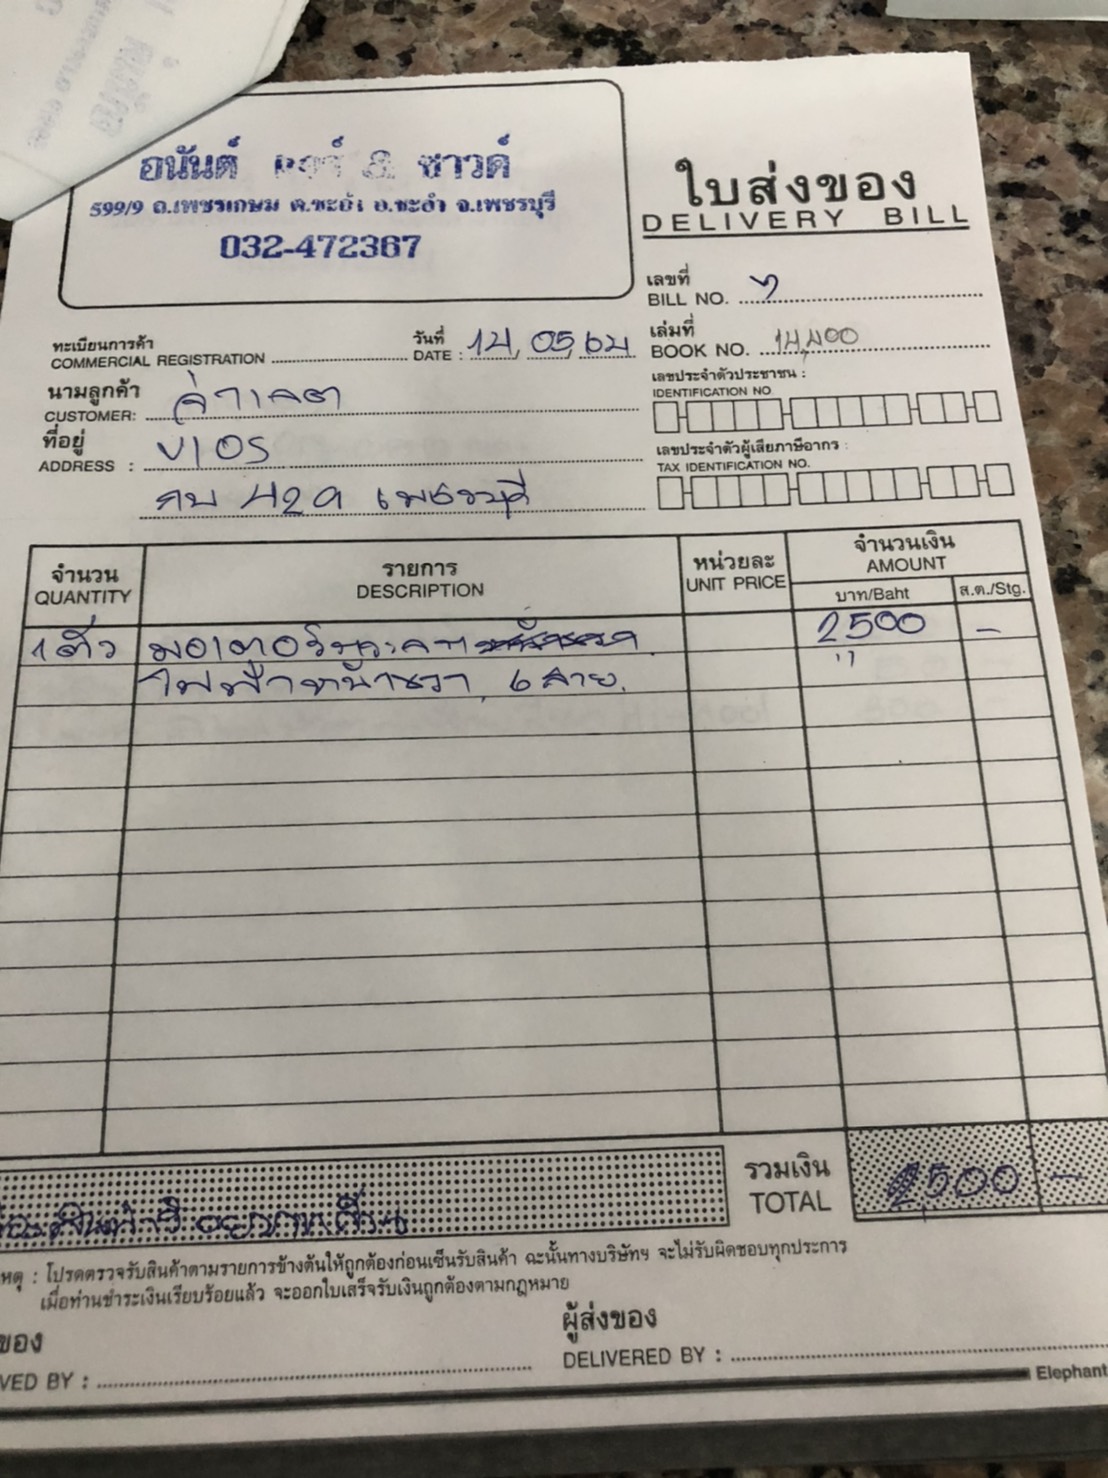 อนันต์ คาร์ & ซาวด์
599/9 ถ.เพชรเกษม ต.ชะอำ อ.ชะอำ จ.เพชรบุรี
032-472367
ใบส่งของ
DELIVERY BILL
เลขที่
BILL NO.
ทะเบียนการค้า
COMMERCIAL REGISTRATION
วันที่
DATE : 14, 05, 64
เล่มที่
BOOK NO. 14,400
นามลูกค้า
CUSTOMER:
เลขประจำตัวประชาชน :
IDENTIFICATION NO
ที่อยู่
ADDRESS : VIOS
กบ 429 เพชรบุรี
เลขประจำตัวผู้เสียภาษีอากร :
TAX IDENTIFICATION NO.
จำนวน
QUANTITY
รายการ
DESCRIPTION
หน่วยละ
UNIT PRICE
จำนวนเงิน
AMOUNT
บาท/Baht
ส.ต./Stg.
1 ตัว มอเตอร์ 2500 -
ไฟฟ้าหน้าขวา 6 สาย.
รวมเงิน
TOTAL
2500 -
หตุ : โปรดตรวจรับสินค้าตามรายการข้างต้นให้ถูกต้องก่อนเซ็นรับสินค้า ฉะนั้นทางบริษัทฯ จะไม่รับผิดชอบทุกประการ
เมื่อท่านชำระเงินเรียบร้อยแล้ว จะออกใบเสร็จรับเงินถูกต้องตามกฎหมาย
ของ
VED BY :
ผู้ส่งของ
DELIVERED BY :
Elephant